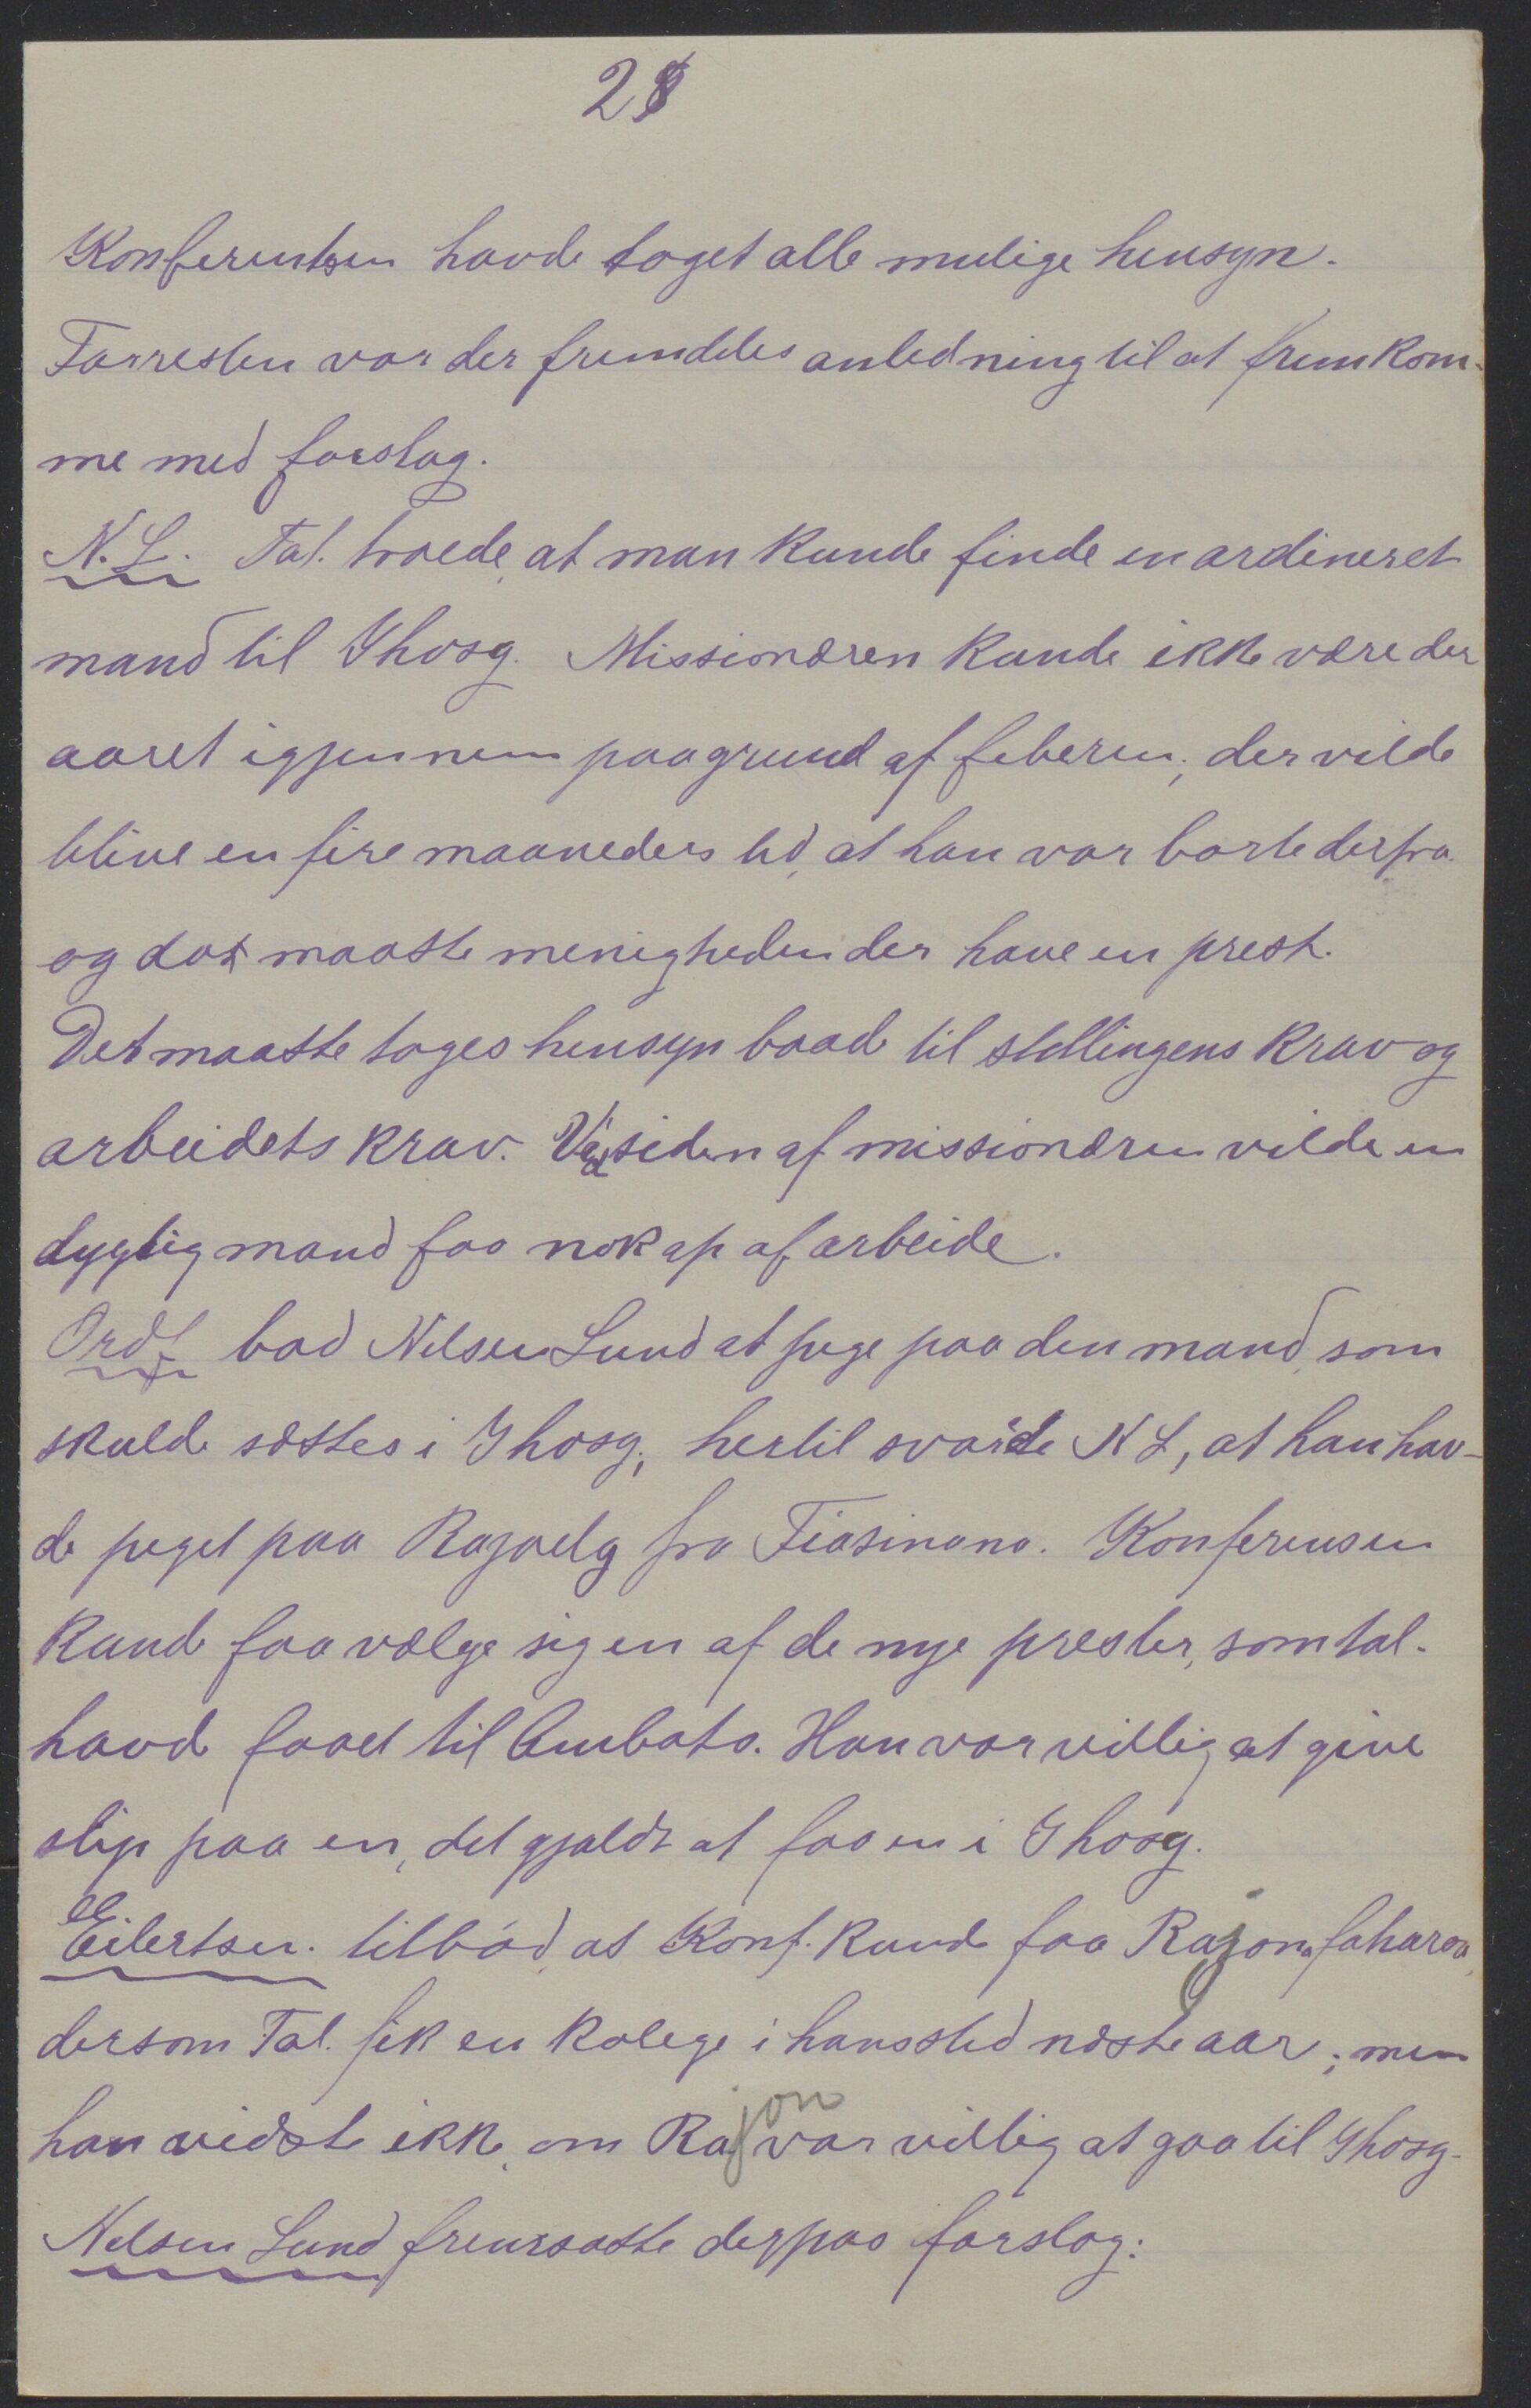 28
Konferentsen havde taget alle mulige hensyn.
Forresten var der fremdeles anledning til at fremkom-
me med forslag.
N. L. Tal. troede, at man kunde finde en ordineret
mand til Ihosy. Missionæren kunde ikke være der
aaret igjennem paa grund af feberen; der vilde
blive en fire maaneders tid, at han var borte derfra
og da maatte menigheden der have en prest.
Det maatte tages hensyn baade til stillingens krav og
arbeidets krav. Ved siden af missionæren vilde en
dygtig mand faa nok op af arbeide.
Ordf bad Nilsen Lund at pege paa den mand, som
skulde sættes i Ihosy; hertil svarte N L, at han hav-
de peget paa Rajaely fra Fiasinana. Konferensen
kunde faa vælge sig en af de nye prester, som tal.
havde faaet til Ambato. Han var villig at give
slip paa en, det gjaldt at faa en i Ihosy.
Eilertsen. tilbød, at Konf. kunde faa Rajonafaharoa,
dersom Tal. fik en kolege i hans sted næste aar; men
han vidste ikke, om Rajon var villig at gaa til Ihosy.
Nilsen Lund fremsatte derpaa forslag: